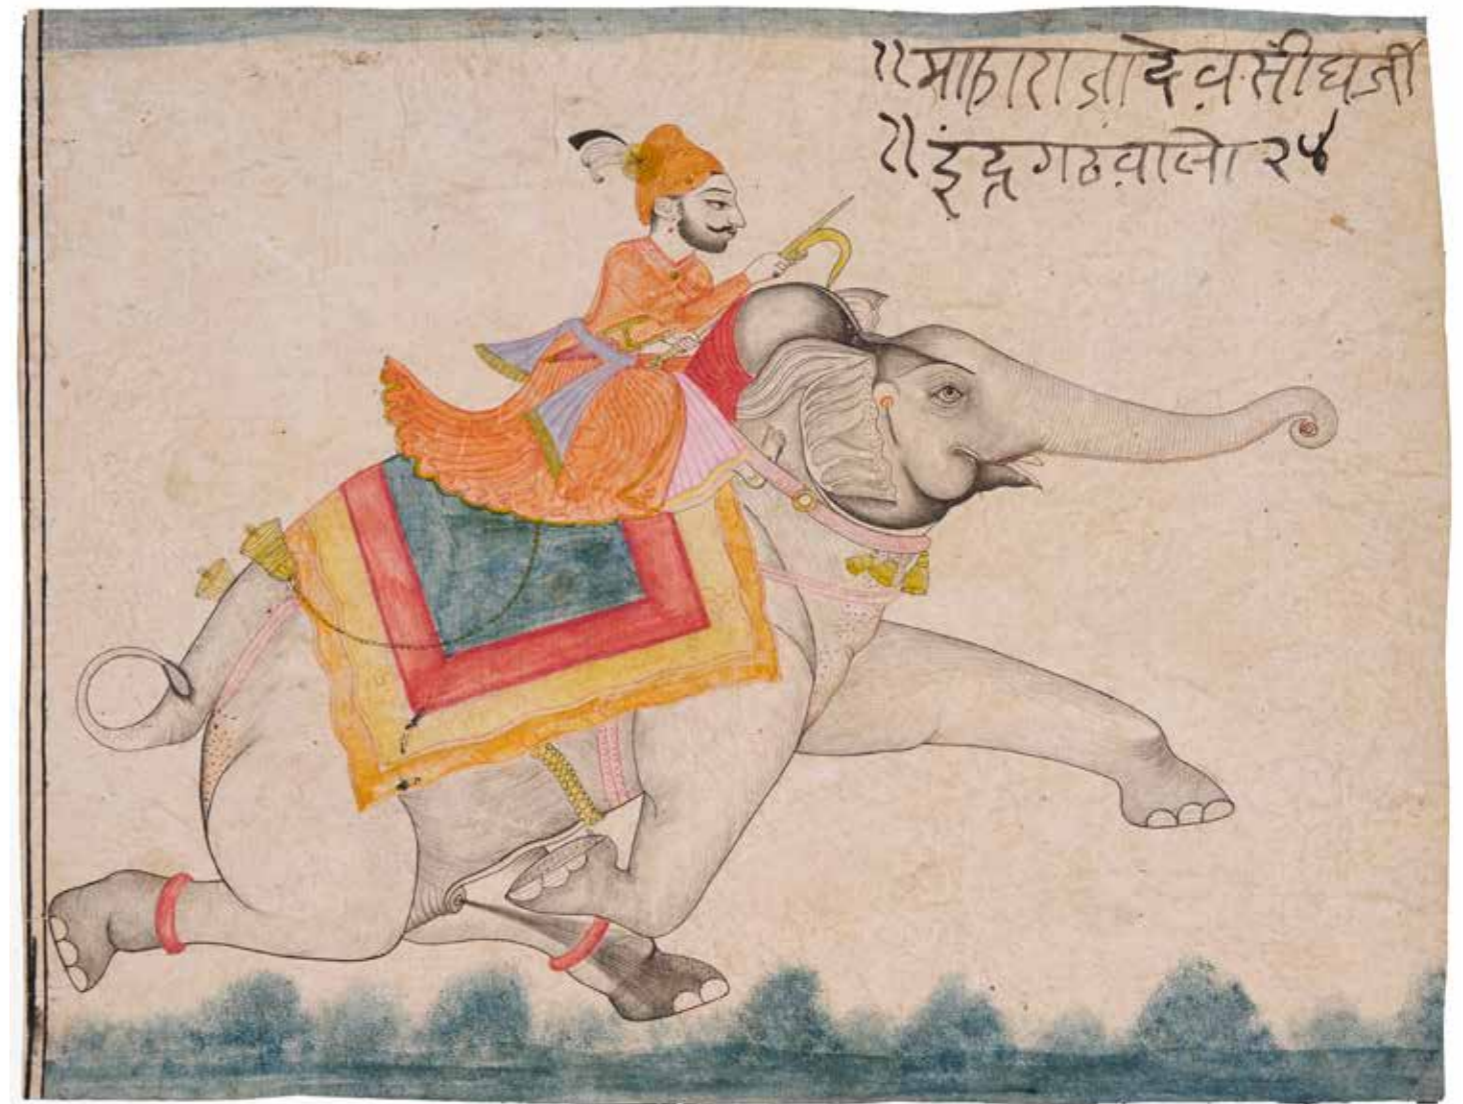 ॥माहाराजा देव़सीघजी
॥इंद्रगढव़ालो २५